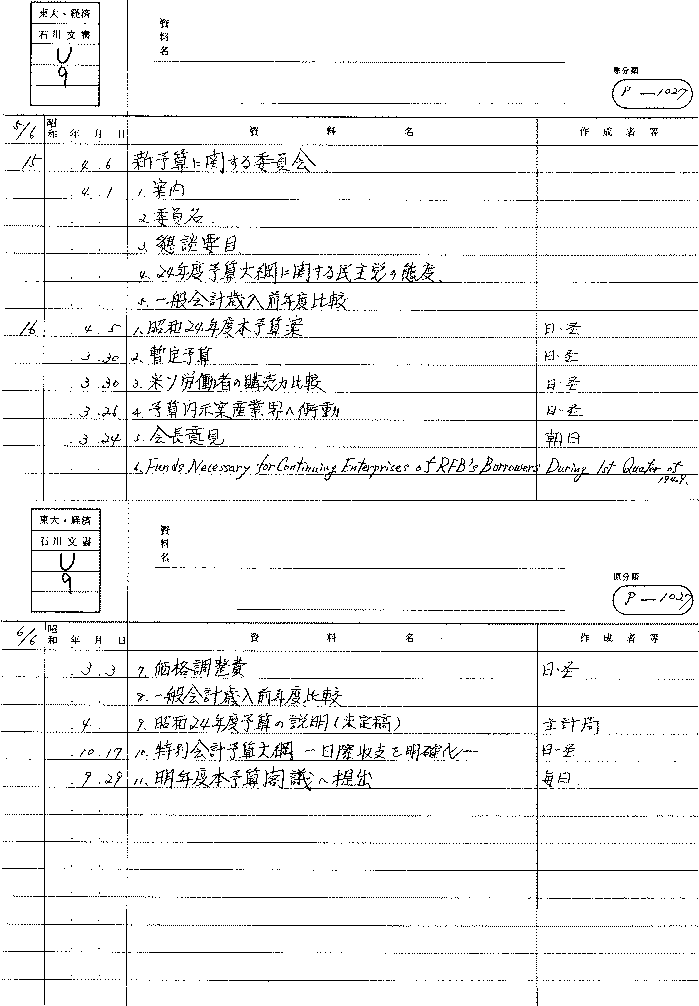 東大・経済
石川文書
U
9
資料名
原分類
P—1027
5/6 昭和 年 月 日 資料名 作成者等
15 4.6 新予算に関する委員会
4.1 1.案内
2.委員名
3.懇談要目
4.24年度予算大綱に関する民主党の態度
5.一般会計歳入前年度比較
16 4.5 1.昭和24年度本予算案 日・圣
3.30 2.暫定予算 日・圣
3.30 3.米ソ労働者の購売力比較 日・圣
3.26 4.予算内示案産業界へ衝動 日・圣
3.24 5.会長意見 朝日
6.Funds Necessary for Continuing Enterprises of RFB's Borrowers During 1st Quater of 1949.
東大・経済
石川文書
U
9
資料名
原分類
P—1027
6/6 昭和 年 月 日 資料名 作成者等
3.3 7.価格調整費 日・圣
8.一般会計歳入前年度比較
4. 9.昭和24年度予算の説明(未定稿) 主計局
10.17 10.特別会計予算大綱 —国際収支を明確化— 日・圣
9.29 11.明年度本予算閣議へ提出 毎日